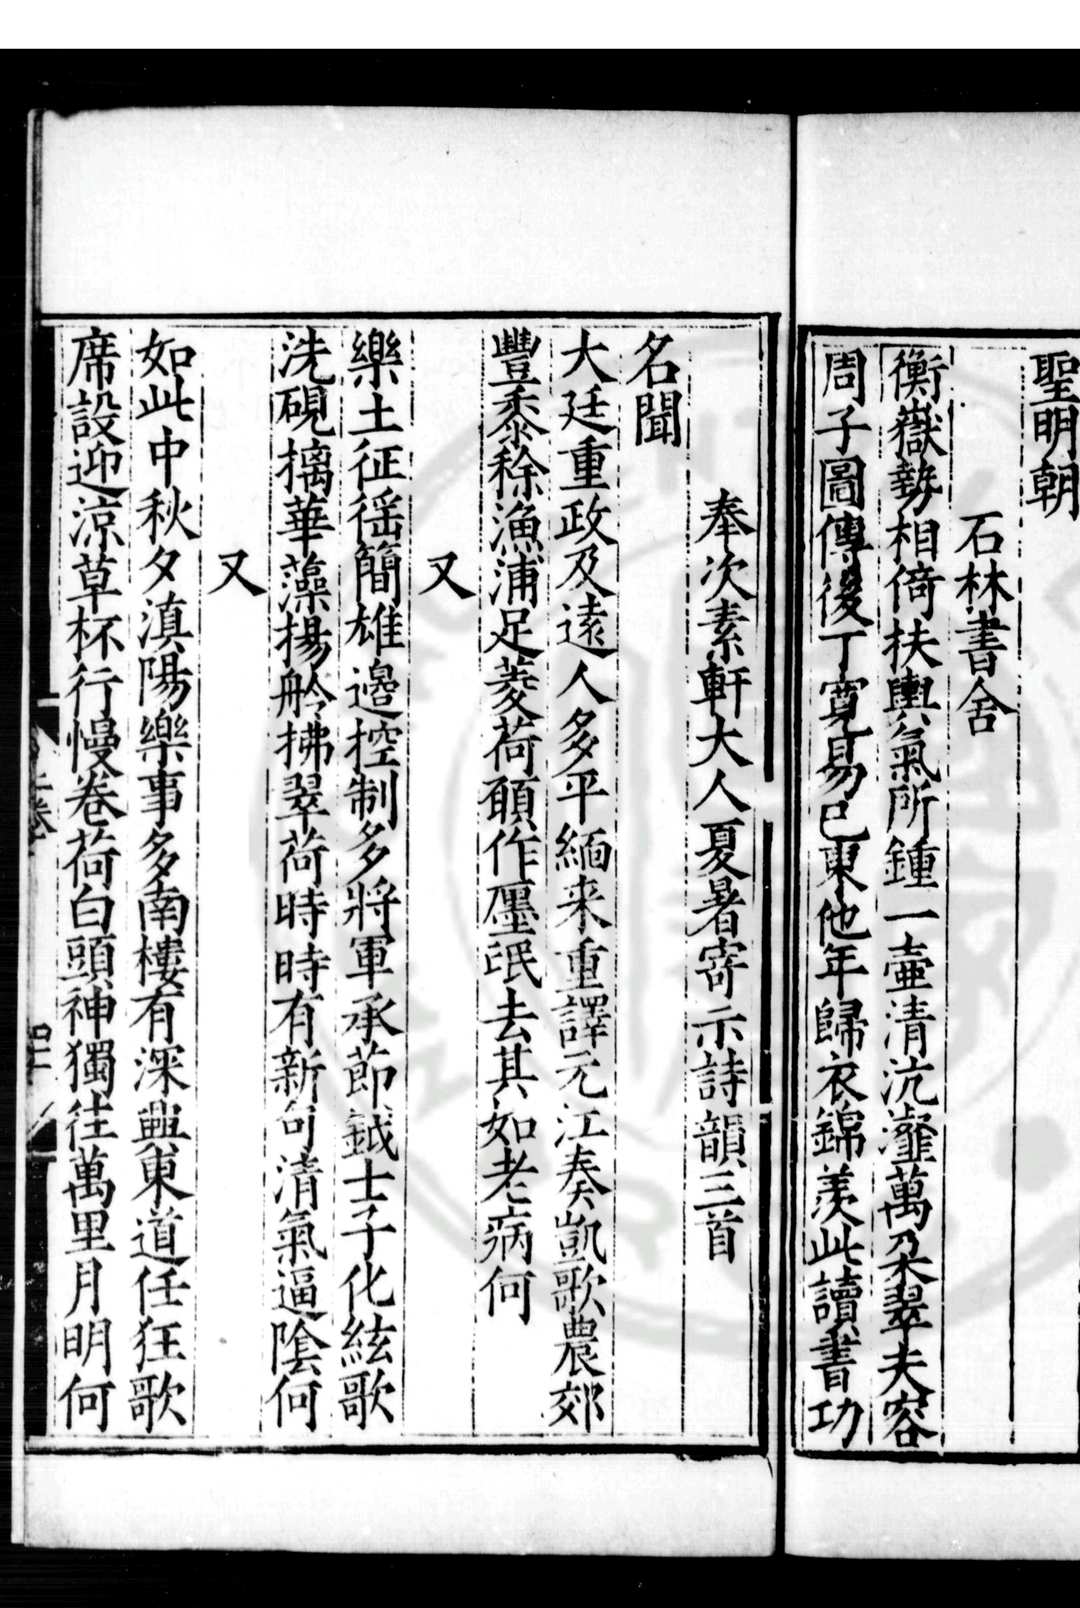 聖明朝
石林書舍
衡嶽勢相倚扶輿氣所鍾一壺清沆瀣萬朵翠夫容
周子圖傳後丁寬易已東他年歸衣錦羨此讀書功
奉次素軒大人夏暑寄示詩韻三首
名聞
大廷重政及遠人多平緬来重譯元江奏凱歌農郊
豐黍稌漁浦足菱荷願作廛氓去其如老病何
又
樂土征徭簡雄邊控制多將軍承節鉞士子化絃歌
洗硯摛華藻揚舲拂翠荷時時有新句清氣逼陰何
又
如此中秋夕滇陽樂事多南樓有深興東道任狂歌
席設迎涼草杯行慢卷荷白頭神獨往萬里月明何
上卷